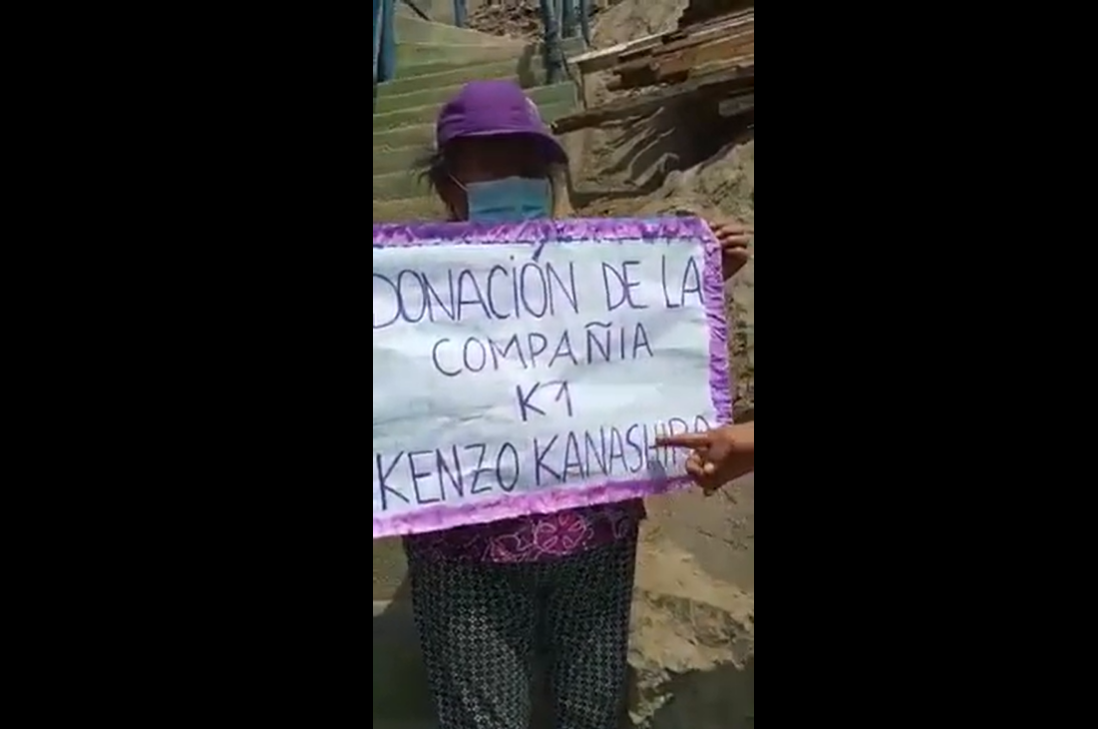 DONACIÓN DE LA
COMPAÑIA
K1
KENZO KANASHIRO